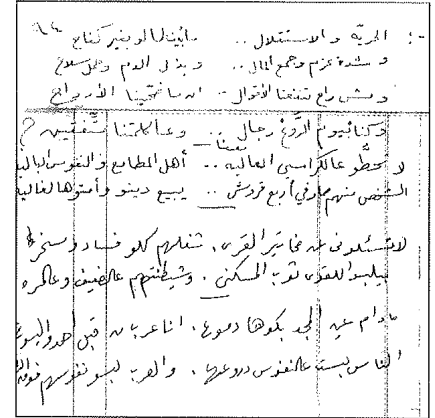 : الحريّه والاستقلال .. مابينالا لو بغير كفاح ٩٤
وشدة عزم وجمع المال .. وبذل الدم وحمل سلاح
ومش راح تنفعنا الأقوال .. ان ما ضحّينا الأرواح
وكنا يوم الروع رجال .. وعا كلمتنا متّفقين
لا تحطّو عالكراسي العاليه .. أهل المطامع والنفوس الباليه
الشخص منهم أربع قروش .. يبيع دينو وأمتو الغاليه
لا تسئلوني عن مخاتير القرى . شغلهم كلو فساد ومسخره
بيلبسو اللقوي ثوب المسكني . وشيطنتهم عالضعيف وعالمره
مادام عين المجد بكوها دموع . انا عربان قبل احمد واليسوع
الناس لبست عالنفوس دروعها . والعرب لبسو نفوسهم فوق